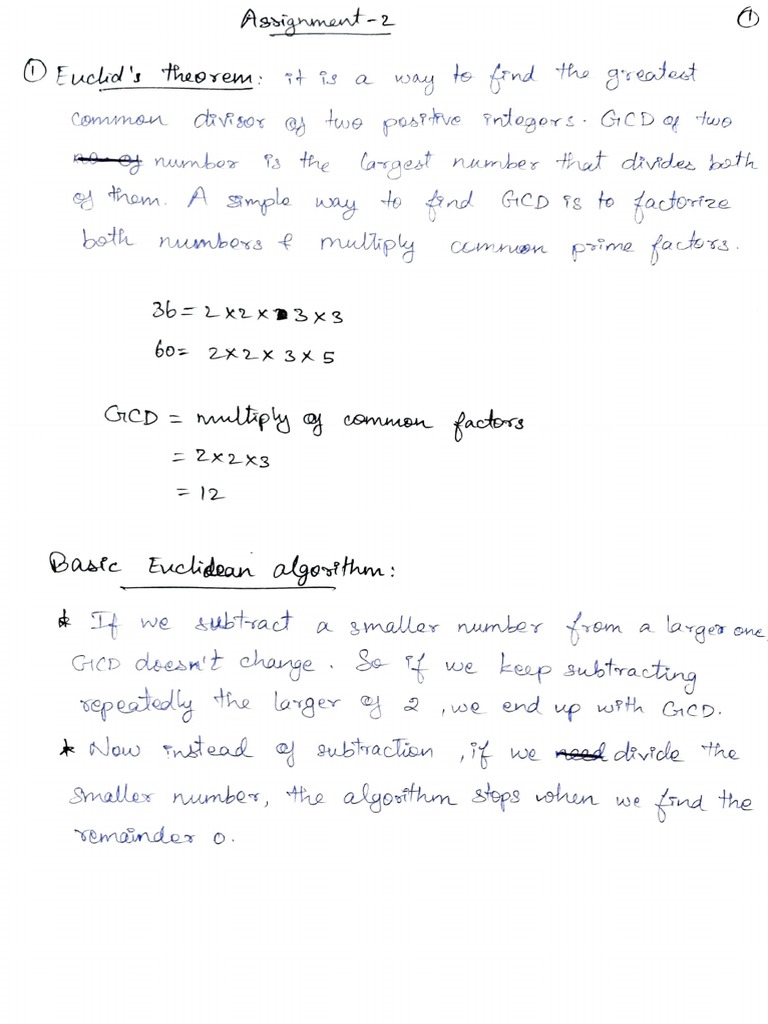 Assignment-2
①
① Euclid's theorem: it is a way to find the greatest
common divisor of two positive integers. GCD of two
number is the largest number that divides both
of them. A simple way to find GCD is to factorize
both numbers & multiply common prime factors.
36 = 2 x 2 x 3 x 3
60 = 2 x 2 x 3 x 5
GCD = multiply of common factors
= 2 x 2 x 3
= 12
Basic Euclidean algorithm:
* If we subtract a smaller number from a larger one,
GCD doesn't change. So if we keep subtracting
repeatedly the larger of 2, we end up with GCD.
* Now instead of subtraction, if we divide the
smaller number, the algorithm stops when we find the
remainder 0.